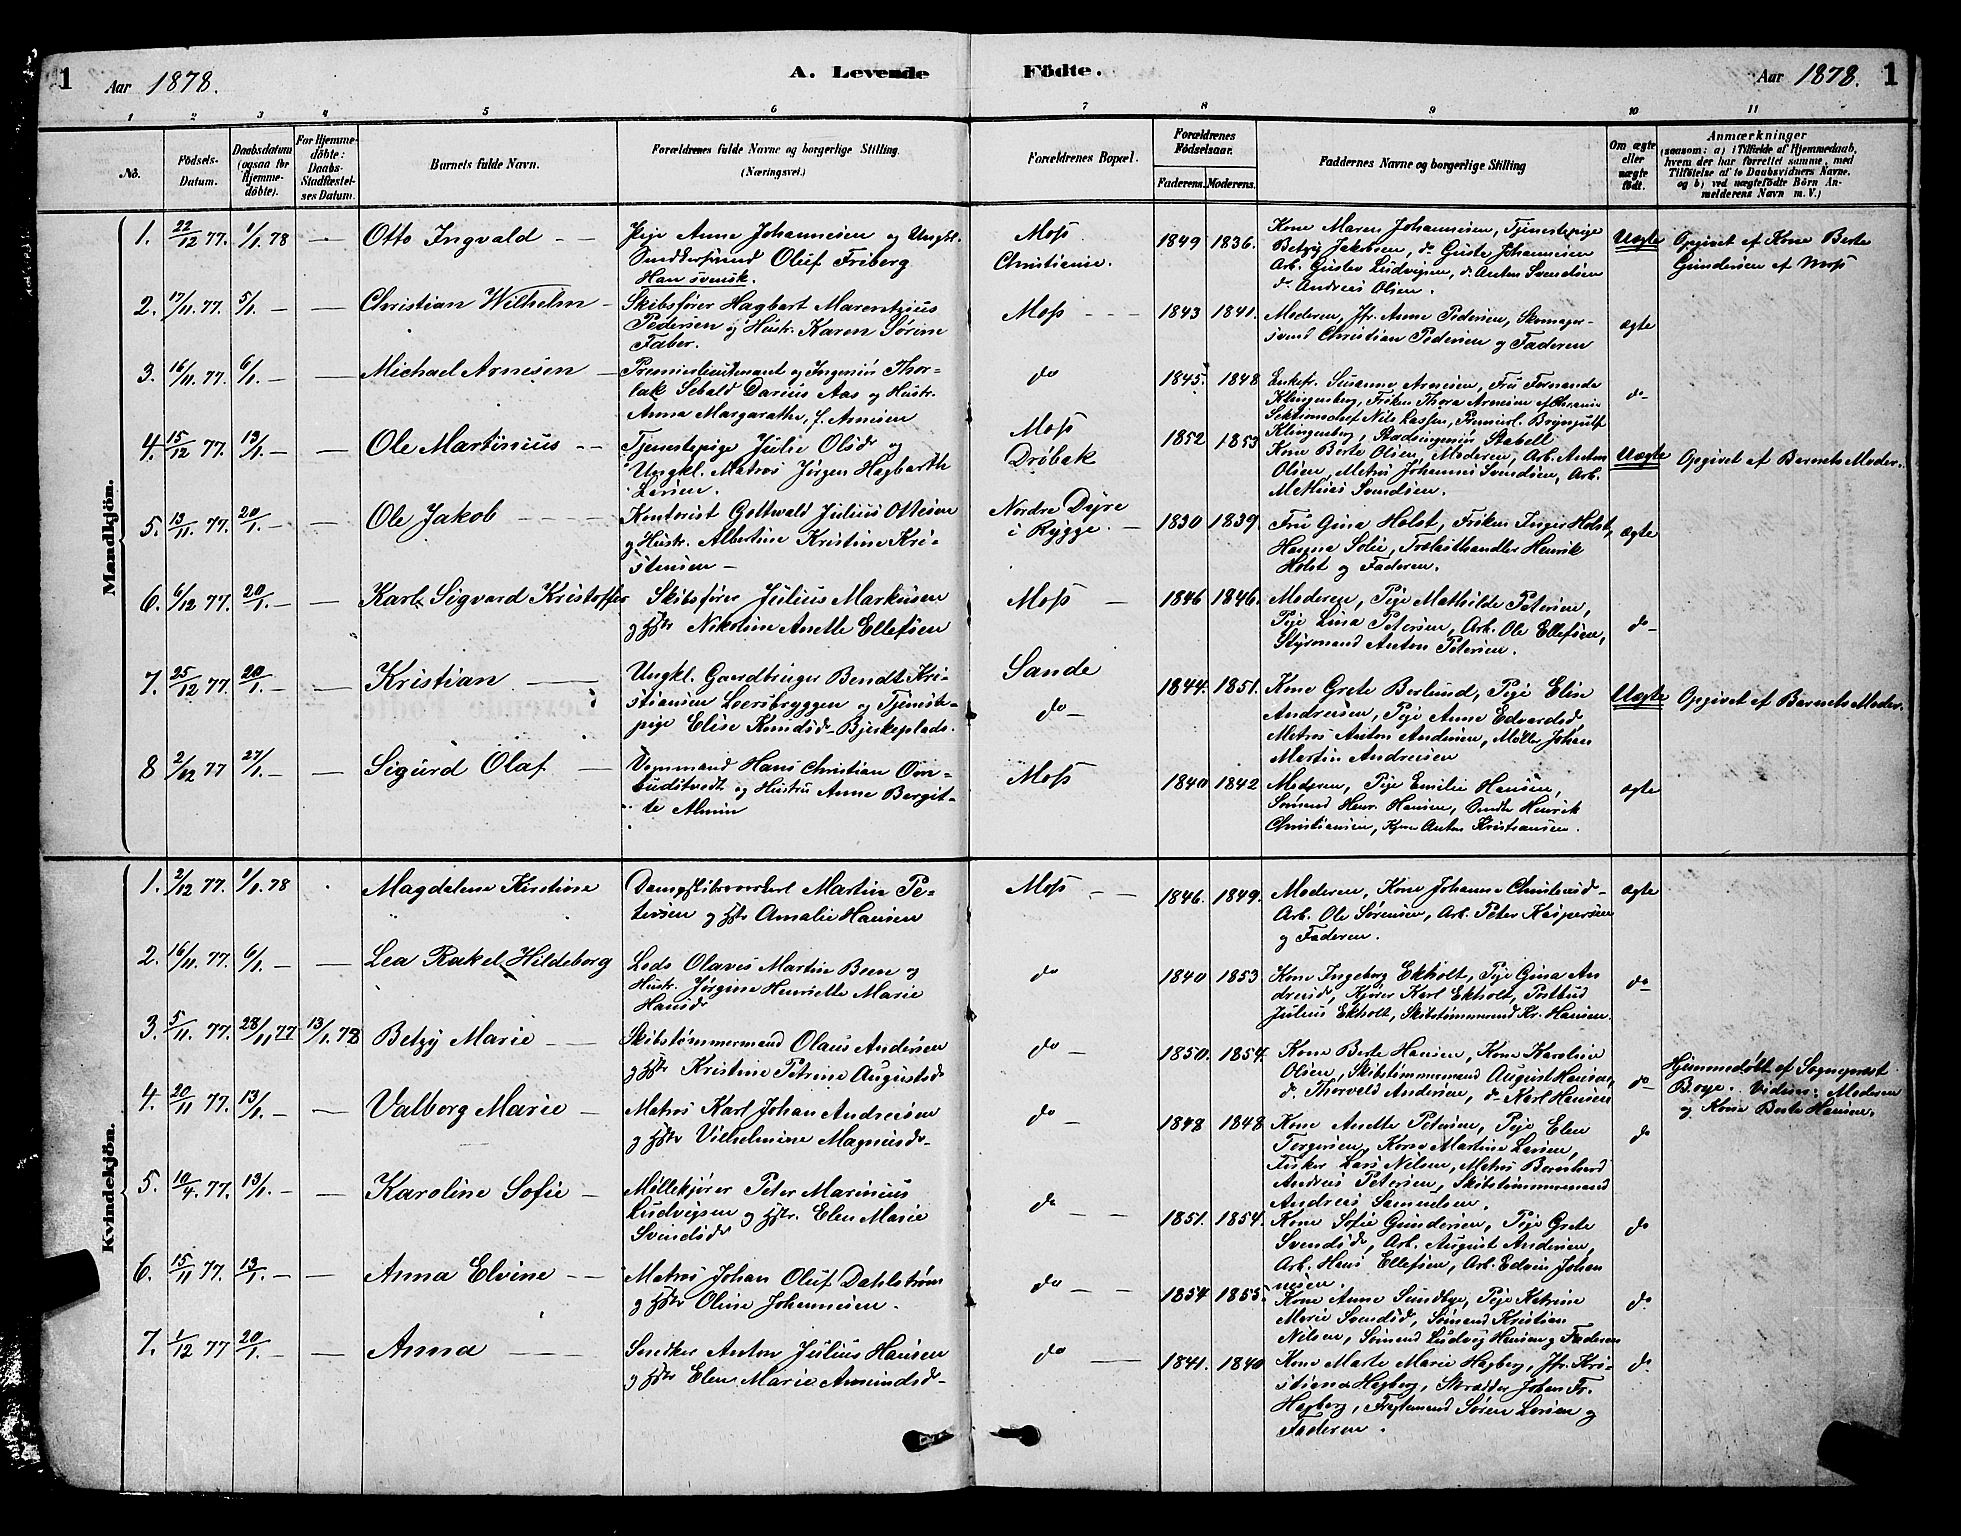 1 Aar 1878. A. Levende Födte. Aar 1878. 1
1 2 3 4 5 6 7 8 9 10 11
No.
Födsels-
Datum.
Daabsdatum
(ogsaa for
Hjemme-
döbte).
For Hjemme-
döbte:
Daabs-
Stadfæstel-
ses Datum.
Barnets fulde Navn.
Forældrenes fulde Navne og borgerlige Stilling.
(Næringsvei.)
Forældrenes Bopæl.
Forældrenes
Födselsaar.
Faderens. Moderens.
Faddernes Navne og borgerlige Stilling
Om ægte
eller
uægte
födt.
Anmærkninger
(saasom: a) i Tilfælde af Hjemmedaab,
hvem der har forrettet samme, med
Tilföielse af to Daabsvidners Navne,
og b) ved uægtefödte Börn An-
melderens Navn m. V.)
Mandkjön.
1. 22/12 77. 1/1. 78 — Otto Ingvald — —
Pige Anna Johannesen og Ungkl.
Snedkersvend Oluf Friberg
Han svensk.
Moss
Christiania.
1849 1836.
Kone Maren Johannesen, Tjenestepige
Betzy Jakobsen, do Guste Johannesen
Arb. Gustav Ludvigsen, do Anton Svendsen
do Andreas Olsen.
Uægte
Opgivet af Kone Berte
Gundersen af Moss
2. 17/11. 77. 5/1. — — Christian Wilhelm —
Skibsfører Hagbart Marentzius
Pedersen og Hustr. Karen Sørine
Faber.
Moss - - -
1843 1841.
Moderen, Jfr. Anna Pedersen, Skomager-
svend Christian Pedersen og Faderen
ægte
3. 16/11. 77. 6/1. — — Michael Arnesen —
Premierlieutenant og Ingeniør Thor-
lak Sebald Darius Aas og Hustr.
Anna Margarethe, f. Arnesen
do
1845. 1848
Enkefr. Susanne Arnesen, Fru Fernanda
Klingenberg, Frøken Thora Arnesen af Chrania
Sektionschef Nils Lassen, Premierl. Brynjulf
Klingenberg, Stadsingeniør Stabell
do
4. 15/12 77. 13/1. — — Ole Martinius - -
Tjenestepige Julie Olsdr og
Ungkl. Matros Jørgen Hagbarth
Larsen.
Moss
Drøbak
1852 1853
Kone Berte Olsen, Moderen, Arb. Anton
Olsen, Matros Johannes Svendsen, Arb.
Mathias Svendsen.
Uægte
Opgivet af Barnets Moder.
5. 13/11. 77. 20/1. — — Ole Jakob - - -
Kontorist Gottwald Julius Ottesen
og Hustr. Albertine Kristine Kri-
stensen —
Nordre Dyre
i Rygge. —
1830 1839.
Fru Gina Holst, Frøken Inger Holst,
Hanna Sofie, Trælasthandler Henrik
Holst og Faderen.
ægte
6. 6/12 77. 20/1. — — Karl Sigvard Kristoffer
Skibsfører Julius Markusen
og Hstr Nikoline Anette Ellefsen
Moss —
1846 1846.
Moderen, Pige Mathilde Petersen,
Pige Lina Petersen, Arb. Ole Ellefsen,
Styrmand Anton Petersen.
do
7. 25/12 77. 20/1. — — Kristian —
Ungkl. Gaardbruger Bendt Kri-
stiansen Loersbryggen og Tjeneste-
pige Elise Knudsd. Bjerkeplads.
Sande
do —
1844. 1851.
Kone Grete Berlund, Pige Elise
Andreasen, Pige Anne Edvardsd.
Matros Anton Andersen, Møller Johan
Martin Andreasen
Uægte
Opgivet af Barnets Moder.
8 2/12 77 27/1. — — Sigurd Olaf —
Vognmand Hans Christian Om-
budstvedt og Hustru Anne Bergit-
te Almin
Moss
1840 1842
Moderen, Pige Emilie Hansen,
Sømand Henr. Hansen, Snedker Henrik
Christiansen, Kjører Anton Kristiansen.
ægte
Kvindekjön.
1. 2/12 77. 1/1. 78 Magdelena Kirstine
Martin Pe-
tersen og Hstr Amalie Hansen
Moss — —
1846. 1849.
Moderen, Kone Johanne
Arb. Ole Sørensen, Arb. Peter Kaspersen
og Faderen.
ægte
2. 16/11. 77. 6/1. — — Lea Rakel Hildeborg
Lods Olaves Martin Been og
Hustr. Jørgine Henriette Marie
Hansdr
do
1840 1853
Kone Ingeborg Ekholt, Pige Gina An
dreasd, Kjører Karl Ekholt, Postbud
Julius Ekholt, Skibstømmermand Kr. Hansen.
do
3. 5/11. 77. 28/11 77 13/1. 78 Betzy Marie —
Skibstømmermand Olaus Andersen
og Hstr Kristine Petrine Augustsdr
do —
1850. 1854.
Kone Berte Hansen, Kone Karoline
Olsen, Skibstømmermand August Hansen,
do Thorvald Andersen, do Karl Hansen
do
Hjemmedøbt af Sogneprest
Boye. Vidner: Moderen
og Kone Berte Hansen.
4. 20/11 77. 13/1. — — Valborg Marie —
Matros Karl Johan Andreasen
og Hstr Vilhelmine Magnusd.
do —
1848 1848
Kone Anette Petersen, Pige Elen
Torgersen, Kone Martine Larsen,
Fisker Lars Nilsen, Matros Bernhard
Andreas Petersen, Skibstømmermand
Andreas Samuelsen.
do
5. 10/4. 77. 13/1. — — Karoline Sofie —
Møllekjører Peter Marinius
Ludvigsen og Hstr. Elen Marie
Svendsdr
do — —
1851. 1854.
Kone Sofie Gundersen, Pige Grete
Svendsdr, Arb. August Andersen,
Arb. Hans Ellefsen, Arb. Edvin Johan
nesen.
do
6. 15/11 77. 13/1. — — Anna Elvine —
Matros Johan Oluf Dahlstrøm
og Hstr Oline Johannesen.
do — —
1854 1855.
Kone Anne Sundbye, Pige Katrine
Marie Svendsd, Sømand Kristian
Nilsen, Sømand Ludvig Hansen og Faderen
do
7. 1/12 77 20/1. — — Anna — —
Snedker Anton Julius Hansen
og Hstr Elen Marie Amundsd.
do —
1841. 1840
Kone Marte Marie Hagberg, Jfr. Kri-
stiana Hagberg, Skrædder Johan Fr.
Hagberg, Fragtemand Søren Larsen og
Faderen.
do